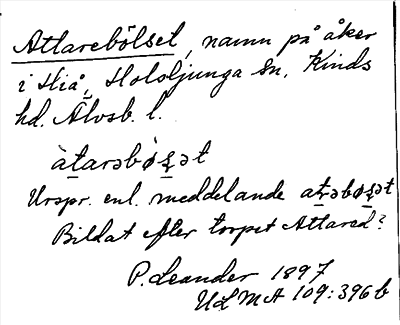 Attarebölset, namn på åker
i Hiå, Hololjunga sn, Kinds
hd. Älvsb. l.
àtarəbø̀ʂət
Urspr. enl. meddelande atʂəbøʂət
Bildat efter torpet Attared?
P. Leander 1897
ULMA 109:396 b